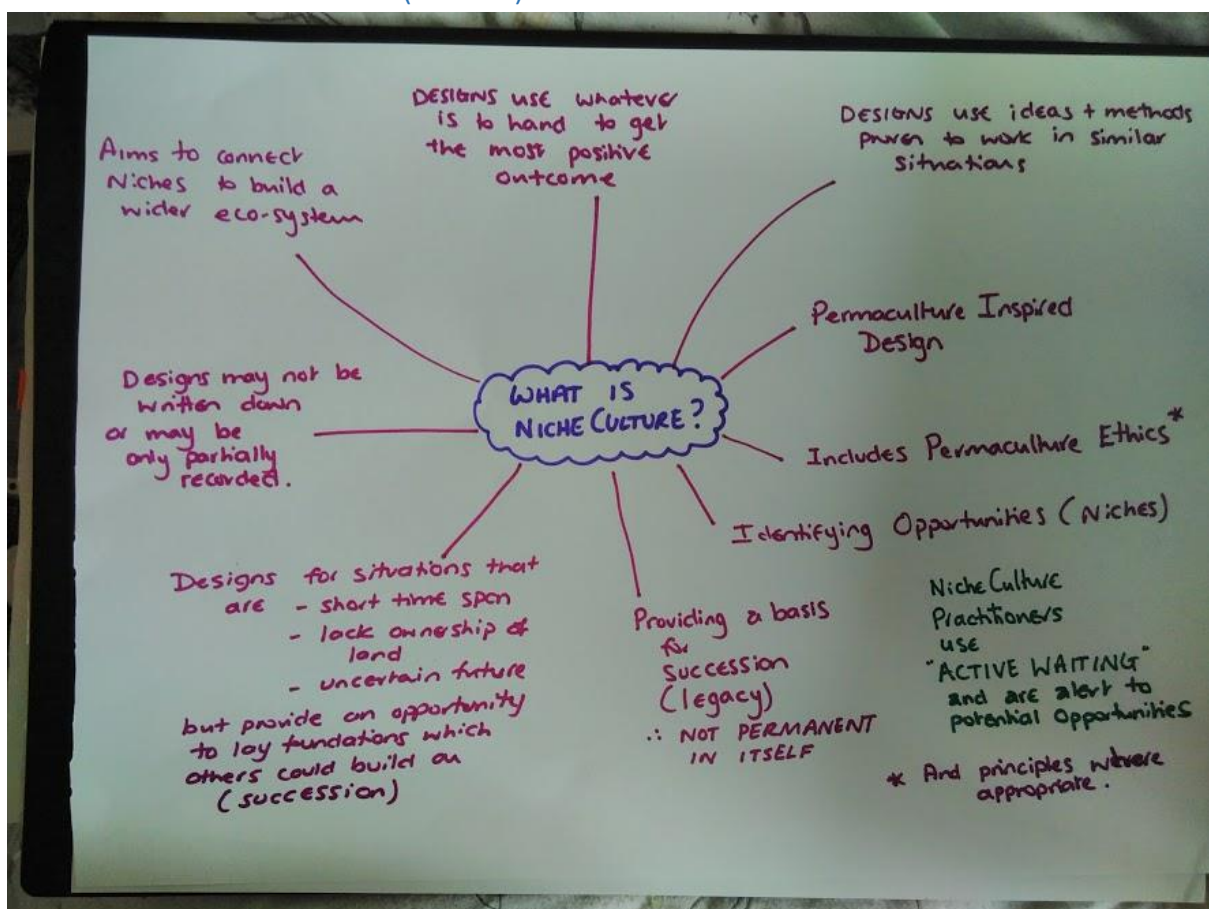 WHAT IS
NICHE CULTURE?
DESIGNS use whatever
is to hand to get
the most positive
outcome
DESIGNS use ideas + methods
proven to work in similar
situations
Permaculture Inspired
Design
Includes Permaculture Ethics*
Identifying Opportunities (Niches)
Niche Culture
Practitioners
use
"ACTIVE WAITING"
and are alert to
potential Opportunities
* And principles where
appropriate.
Providing a basis
for
Succession
(legacy)
∴ NOT PERMANENT
IN ITSELF
Designs for situations that
are - short time span
- lack ownership of
land
- uncertain future
but provide an opportunity
to lay fundations which
others could build on
(succession)
Designs may not be
written down
or may be
only partially
recorded.
Aims to connect
Niches to build a
wider eco-system